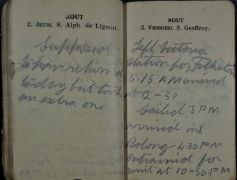 AOUT
2. JEUDI. S. Alph. de Liguori.
Supposed
to have returned
today but took
an extra one
AOUT
3. VENDREDI. S. Geoffroy.
Left Victoria
station for Folkestone
6.15 AM arrived
at 12-30
Sailed 3 PM
arrived in
4.30 PM
entrained for
unit at 10-30 PM